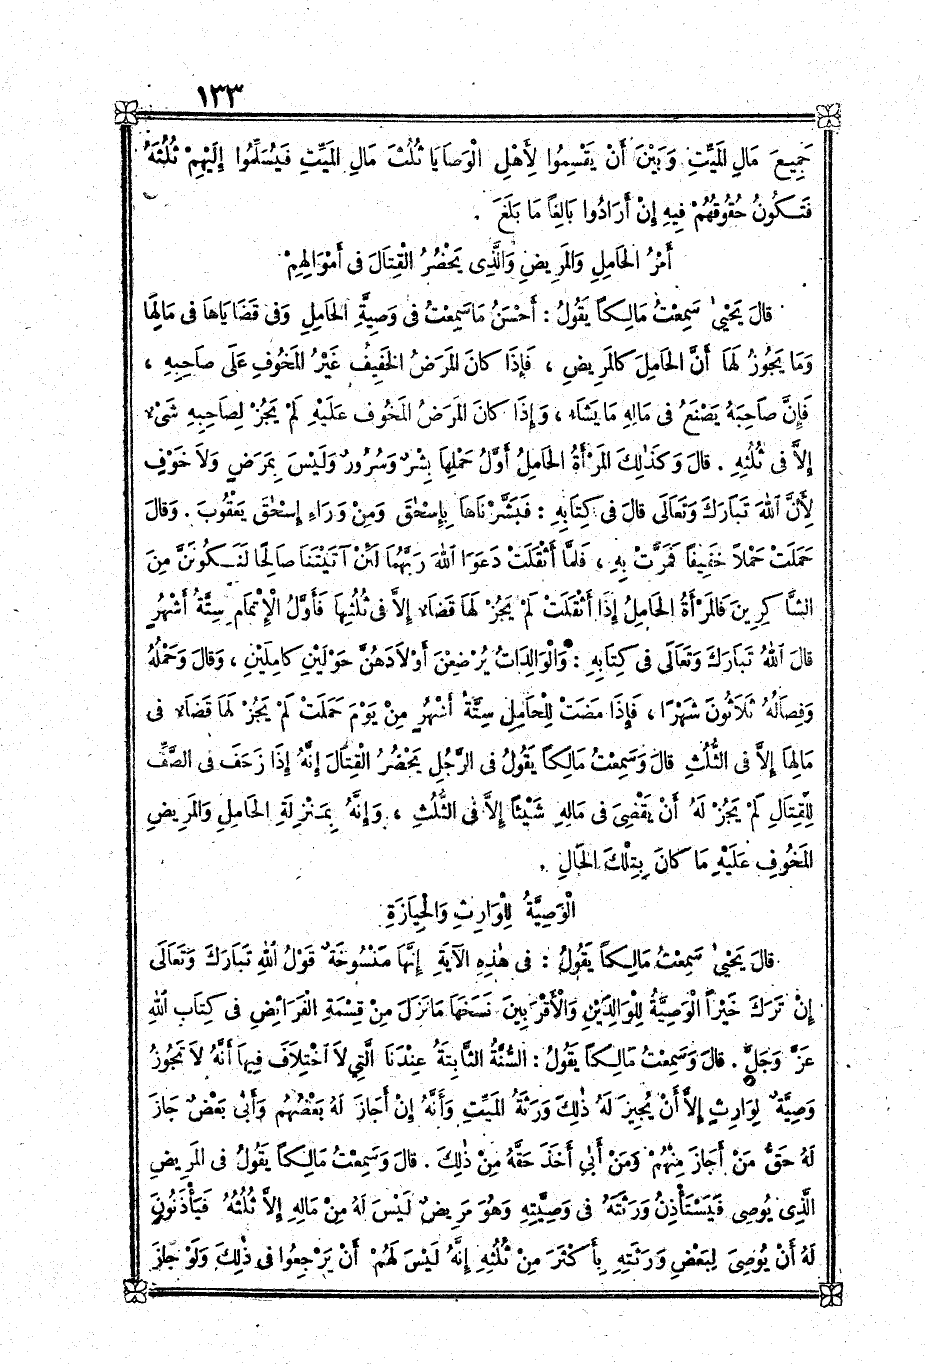 ١٣٣
جَمِيعَ مَالِ الْمَيِّتِ وَبَيْنَ أَنْ يَقْسِمُوا لِأَهْلِ الْوَصَايَا ثُلُثَ مَالِ الْمَيِّتِ فَيُسَلِّمُوا إِلَيْهِمْ ثُلُثَهُ
فَتَكُونُ حُقُوقُهُمْ فِيهِ إِنْ أَرَادُوا بَالِغًا مَا بَلَغَ .
أَمْرُ الْحَامِلِ وَالْمَرِيضِ وَالَّذِى يَحْضُرُ الْقِتَالَ فِى أَمْوَالِهِمْ
قَالَ يَحْيَىٰ سَمِعْتُ مَالِكاً يَقُولُ : أَحْسَنُ مَا سَمِعْتُ فِى وَصِيَّةِ الْحَامِلِ وَفِى قَضَايَاهَا فِى مَالِهَا
وَمَا يَجُوزُ لَهَا أَنَّ الْحَامِلَ كَالْمَرِيضِ ، فَإِذَا كَانَ الْمَرَضُ الْخَفِيفُ غَيْرُ الْمَخُوفِ عَلَى صَاحِبِهِ ،
فَإِنَّ صَاحِبَهُ يَصْنَعُ فِى مَالِهِ مَا يَشَاءُ ، وَإِذَا كَانَ الْمَرَضُ الْمَخُوفُ عَلَيْهِ لَمْ يَجُزْ لِصَاحِبِهِ شَىْءٌ
إِلاَّ فِى ثُلُثِهِ . قَالَ وَكَذٰلِكَ الْمَرْأَةُ الْحَامِلُ أَوَّلُ حَمْلِهَا بِشْرٌ وَسُرُورٌ وَلَيْسَ بِمَرَضٍ وَلَا خَوْفٍ
لِأَنَّ اللهَ تَبَارَكَ وَتَعَالَى قَالَ فِى كِتَابِهِ : فَبَشَّرْنَاهَا بِإِسْحٰقَ وَمِنْ وَرَاءِ إِسْحٰقَ يَعْقُوبَ . وَقَالَ
حَمَلَتْ حَمْلاً خَفِيفاً فَمَرَّتْ بِهِ ، فَلَمَّا أَثْقَلَتْ دَعَوَا اللهَ رَبَّهُمَا لَئِنْ آتَيْتَنَا صَالِحًا لَنَكُونَنَّ مِنَ
الشَّاكِرِينَ فَالْمَرْأَةُ الْحَامِلُ إِذَا أَثْقَلَتْ لَمْ يَجُزْ لَهَا قَضَاءٌ إِلاَّ فِى ثُلُثِهَا فَأَوَّلُ الْإِتْمَامِ سِتَّةُ أَشْهُرٍ
قَالَ اللهُ تَبَارَكَ وَتَعَالَى فِى كِتَابِهِ : وَالْوَالِدَاتُ يُرْضِعْنَ أَوْلاَدَهُنَّ حَوْلَيْنِ كَامِلَيْنِ ، وَقَالَ وَحَمْلُهُ
وَفِصَالُهُ ثَلَاثُونَ شَهْرًا ، فَإِذَا مَضَتْ لِلْحَامِلِ سِتَّةُ أَشْهُرٍ مِنْ يَوْمَ حَمَلَتْ لَمْ يَجُزْ لَهَا قَضَاءٌ فِى
مَالِهَا إِلاَّ فِى الثُّلُثِ قَالَ وَسَمِعْتُ مَالِكاً يَقُولُ فِى الرَّجُلِ يَحْضُرُ الْقِتَالَ إِنَّهُ إِذَا زَحَفَ فِى الصَّفِّ
لِلْقِتَالِ لَمْ يَجُزْ لَهُ أَنْ يَقْضِىَ فِى مَالِهِ شَيْئًا إِلاَّ فِى الثُّلُثِ ، وَإِنَّهُ بِمَنْزِلَةِ الْحَامِلِ وَالْمَرِيضِ
الْمَخُوفِ عَلَيْهِ مَا كَانَ بِتِلْكَ الْحَالِ .
الْوَصِيَّةُ لِلْوَارِثِ وَالْحِيَازَةِ
قَالَ يَحْيَىٰ سَمِعْتُ مَالِكاً يَقُولُ : فِى هٰذِهِ الْآيَةِ إِنَّهَا مَنْسُوخَةٌ قَوْلُ اللهِ تَبَارَكَ وَتَعَالَى
إِنْ تَرَكَ خَيْراً الْوَصِيَّةُ لِلْوَالِدَيْنِ وَالْأَقْرَبِينَ نَسَخَهَا مَا نَزَلَ مِنْ قِسْمَةِ الْفَرَائِضِ فِى كِتَابِ اللهِ
عَزَّ وَجَلَّ . قَالَ وَسَمِعْتُ مَالِكاً يَقُولُ : السُّنَّةُ الثَّابِتَةُ عِنْدَنَا الَّتِي لَا اخْتِلَافَ فِيهَا أَنَّهُ لَا تَجُوزُ
وَصِيَّةٌ لِوَارِثٍ إِلاَّ أَنْ يُجِيزَ لَهُ ذٰلِكَ وَرَثَةُ الْمَيِّتِ وَأَنَّهُ إِنْ أَجَازَ لَهُ بَعْضُهُمْ وَأَبَى بَعْضٌ جَازَ
لَهُ حَقُّ مَنْ أَجَازَ مِنْهُمْ وَمَنْ أَبَى أَخَذَ حَقَّهُ مِنْ ذٰلِكَ . قَالَ وَسَمِعْتُ مَالِكاً يَقُولُ فِى الْمَرِيضِ
الَّذِى يُوصِى فَيَسْتَأْذِنُ وَرَثَتَهُ فِى وَصِيَّتِهِ وَهُوَ مَرِيضٌ لَيْسَ لَهُ مِنْ مَالِهِ إِلاَّ ثُلُثُهُ فَيَأْذَنُونَ
لَهُ أَنْ يُوصِىَ لِبَعْضِ وَرَثَتِهِ بِأَكْثَرَ مِنْ ثُلُثِهِ إِنَّهُ لَيْسَ لَهُمْ أَنْ يَرْجِعُوا فِى ذٰلِكَ وَلَوْ جَازَ